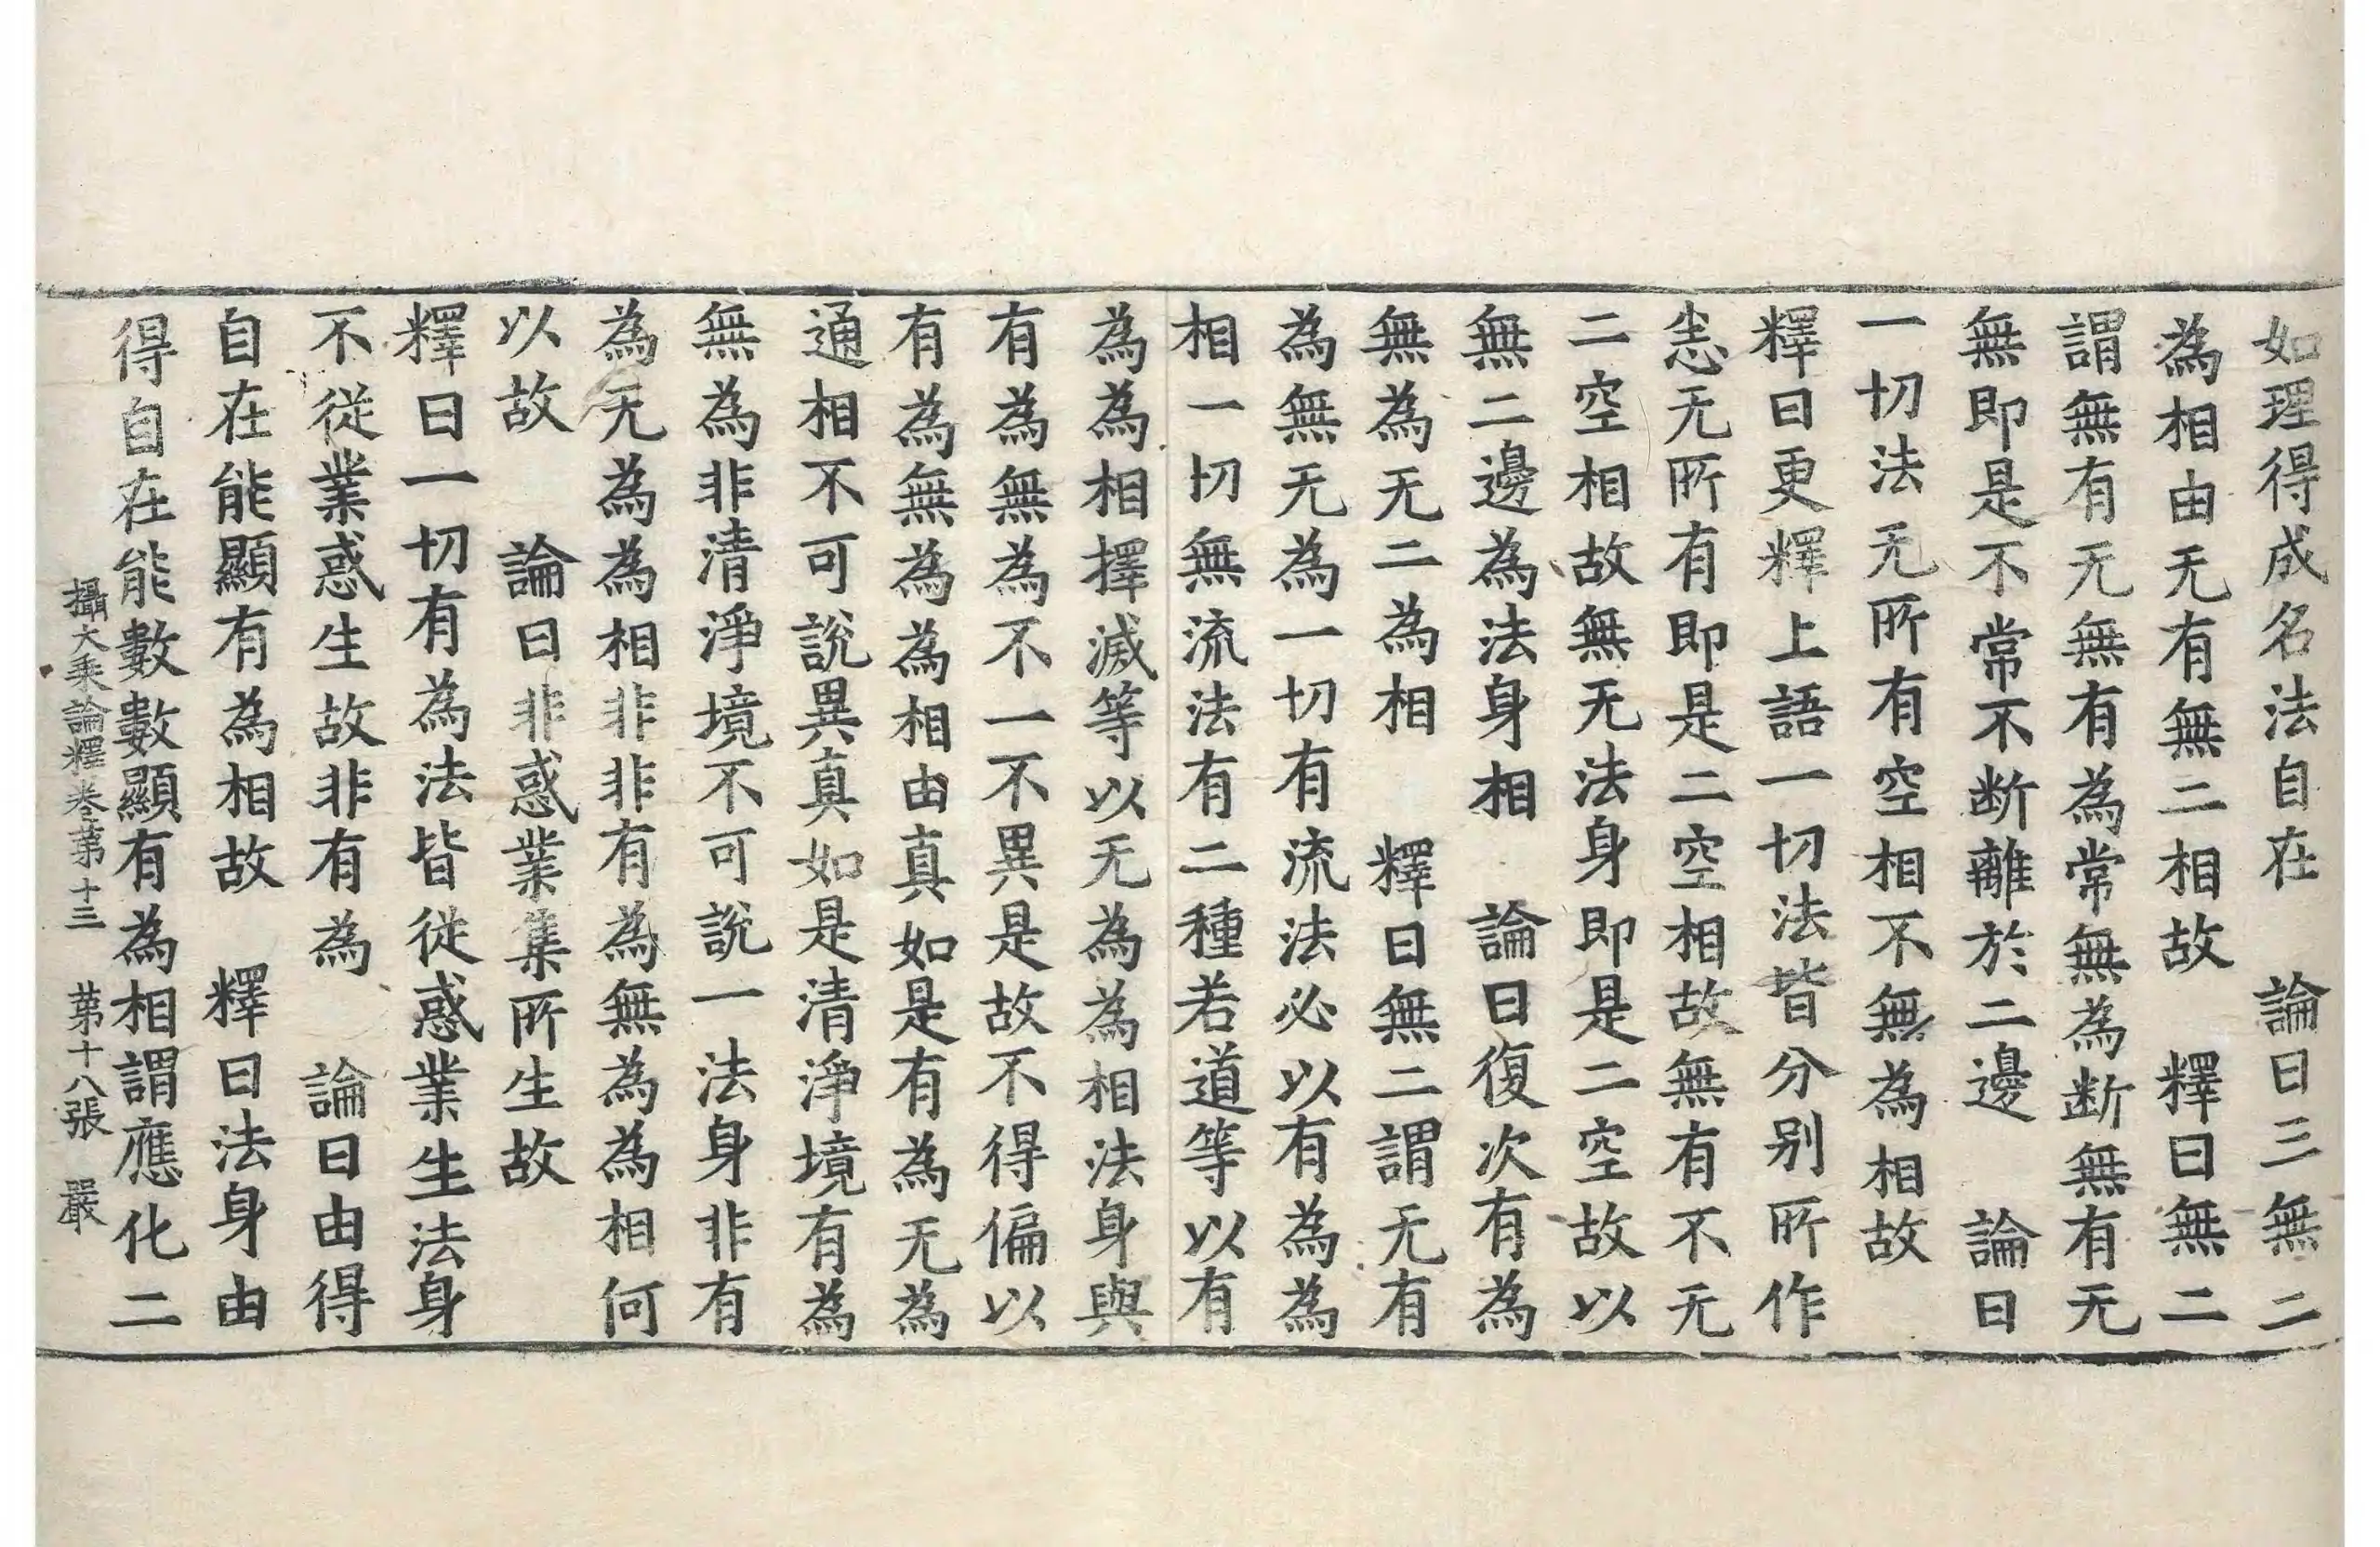 如理得成名法自在　論曰三無二
為相由无有無二相故　釋曰無二
謂無有无無有為常無為断無有无
無即是不常不断離於二邊　論曰
一切法无所有空相不無為相故
釋曰更釋上語一切法皆分別所作
恙无所有即是二空相故無有不无
二空相故無无法身即是二空故以
無二邊為法身相　論曰復次有為
無為无二為相　釋曰無二謂无有
為無无為一切有流法必以有為為
相一切無流法有二種若道等以有
為為相擇滅等以无為為相法身與
有為無為不一不異是故不得偏以
有為無為為相由真如是有為无為
通相不可說異真如是清淨境有為
無為非清淨境不可說一法身非有
為无為為相非非有為無為為相何
以故　論曰非惑業集所生故
釋曰一切有為法皆從惑業生法身
不從業惑生故非有為　論曰由得
自在能顯有為相故　釋曰法身由
得自在能數數顯有為相謂應化二
攝大乘論釋卷第十三　第十八張　嚴